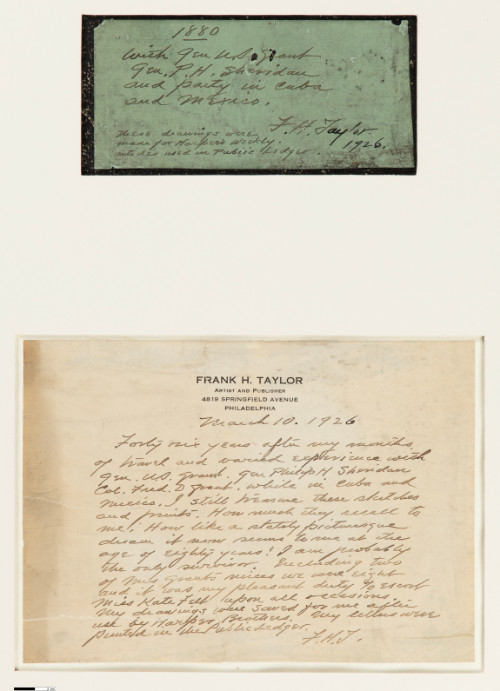 1880
With Gen U.S. Grant
Gen. P. H. Sheridan
and party in Cuba
and Mexico.
F. H. Taylor
1926.
These drawings were
made for Harper's Weekly.
used in Public Ledger.
FRANK H. TAYLOR
ARTIST AND PUBLISHER
4819 SPRINGFIELD AVENUE
PHILADELPHIA
March 10. 1926
Forty six years after my months
of travel and varied experience with
Gen. U.S. Grant. Gen Philip H Sheridan
Col. Fred. D Grant, while in Cuba and
Mexico, I still treasure these sketches
and prints. How much they recall to
me! How like a stately picturesque
dream it now seems to me at the
age of eighty years! I am probably
the only survivor. Including two
of Mrs Grants nieces we were eight
and it was my pleasant duty to escort
Miss Kate Felt upon all occasions
My drawings were saved for me after
use by Harper Brothers. My letters were
printed in the Public Ledger.
F.H.T.